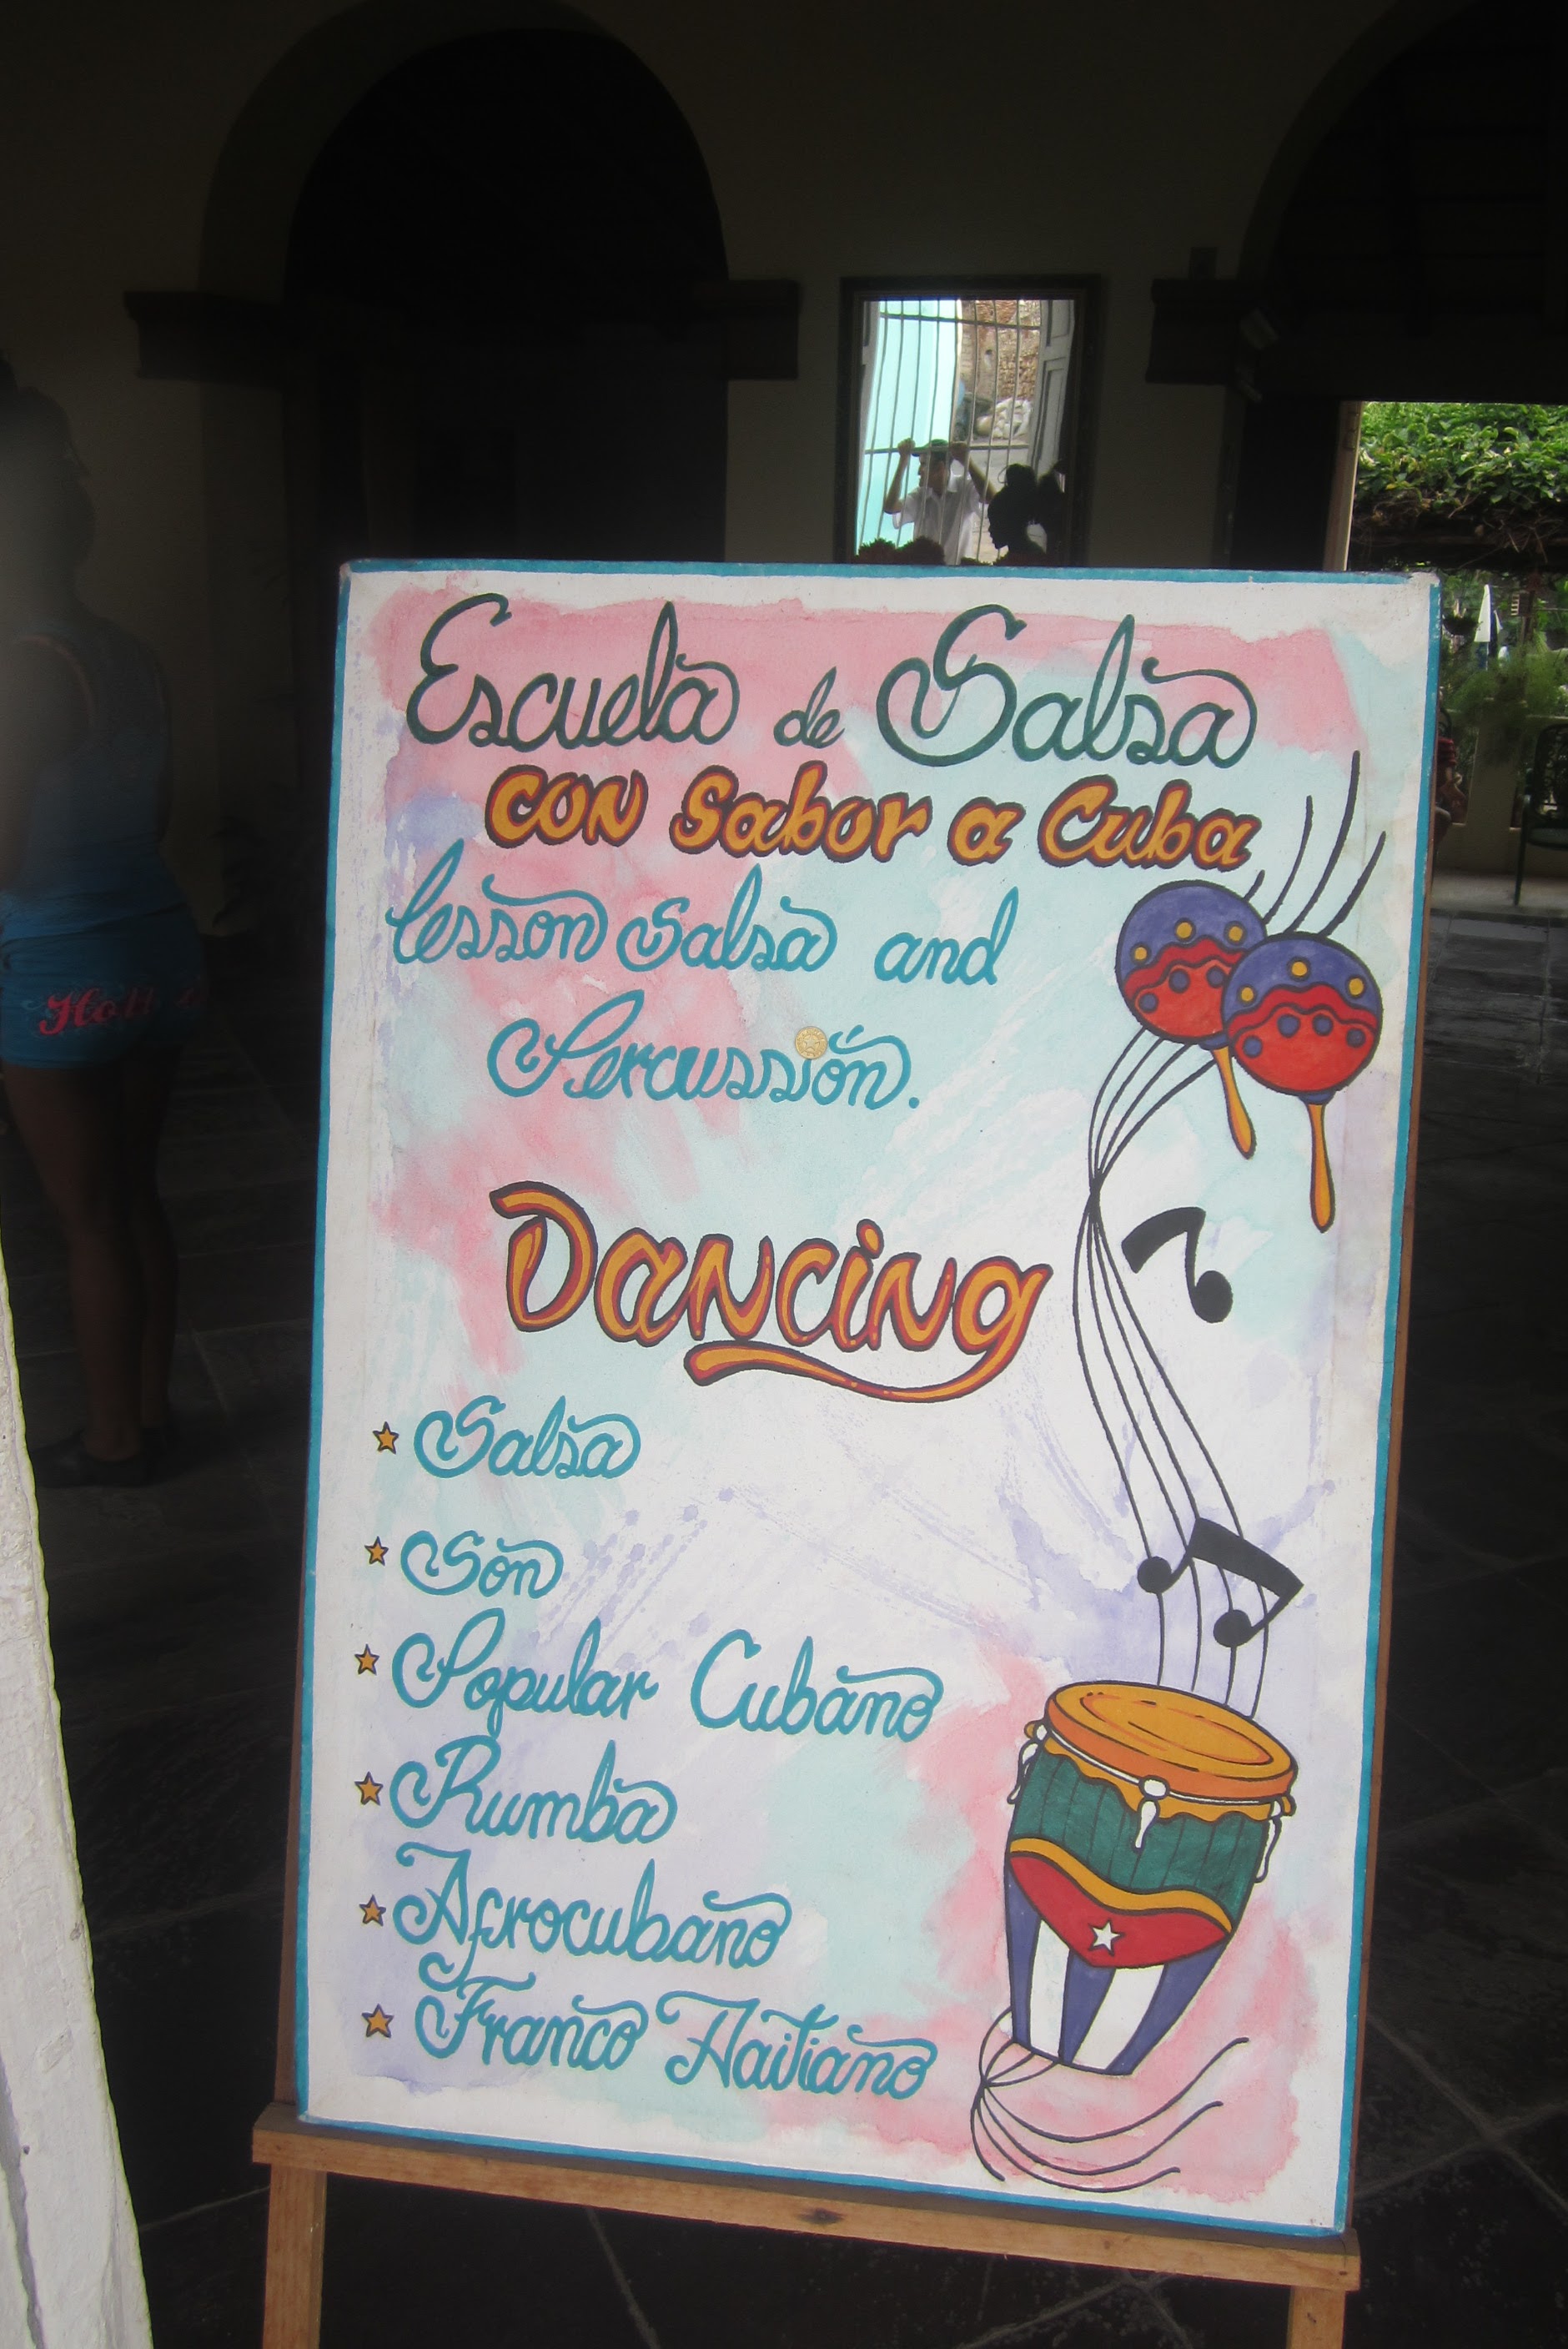 Escuela de Salsa
con Sabor a Cuba
lesson Salsa and
Percussión.
Dancing
Salsa
Són
Popular Cubano
Rumba
Afrocubano
Franco Haitiano